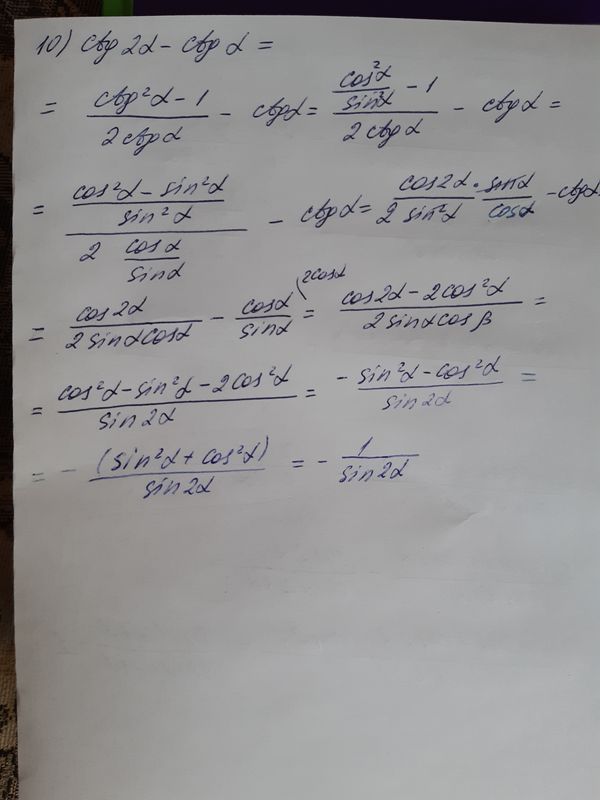 10) ctg 2α - ctg α =
= (ctg²α - 1)/(2 ctg α) - ctg α = (cos²α/sin²α - 1)/(2 ctg α) - ctg α =
= ((cos²α - sin²α)/sin²α)/(2 cosα/sinα) - ctg α = cos2α/(2 sin²α) · sinα/cosα - ctg α
= cos2α/(2 sinα cosα) - cosα/sinα (2cosα = (cos2α - 2cos²α)/(2 sinα cos β) =
= (cos²α - sin²α - 2cos²α)/(sin 2α) = (-sin²α - cos²α)/(sin 2α) =
= - (sin²α + cos²α)/(sin 2α) = - 1/(sin 2α)